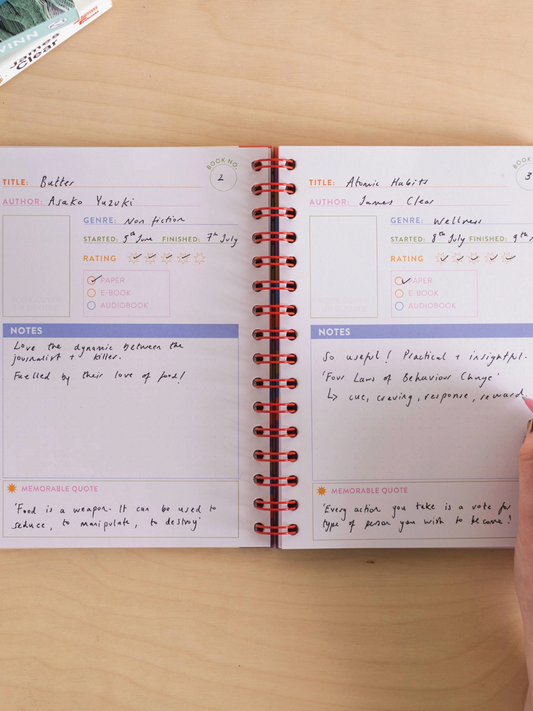 WINN
James
Clear
BOOK NO.
2
TITLE: Butter
AUTHOR: Asako Yuzuki
GENRE: Non fiction
STARTED: 5th June FINISHED: 7th July
RATING
PAPER
E-BOOK
AUDIOBOOK
NOTES
Love the dynamic between the
journalist + killer.
Fuelled by their love of food!
MEMORABLE QUOTE
'Food is a weapon. It can be used to
seduce, to manipulate, to destroy'
BOOK NO
3
TITLE: Atomic Habits
AUTHOR: James Clear
GENRE: Wellness
STARTED: 8th July FINISHED: 9th
RATING
PAPER
E-BOOK
AUDIOBOOK
NOTES
So useful! Practical + insightful.
'Four Laws of Behaviour Change'
↳ cue, craving, response, reward.
MEMORABLE QUOTE
'Every action you take is a vote for
type of person you wish to become!